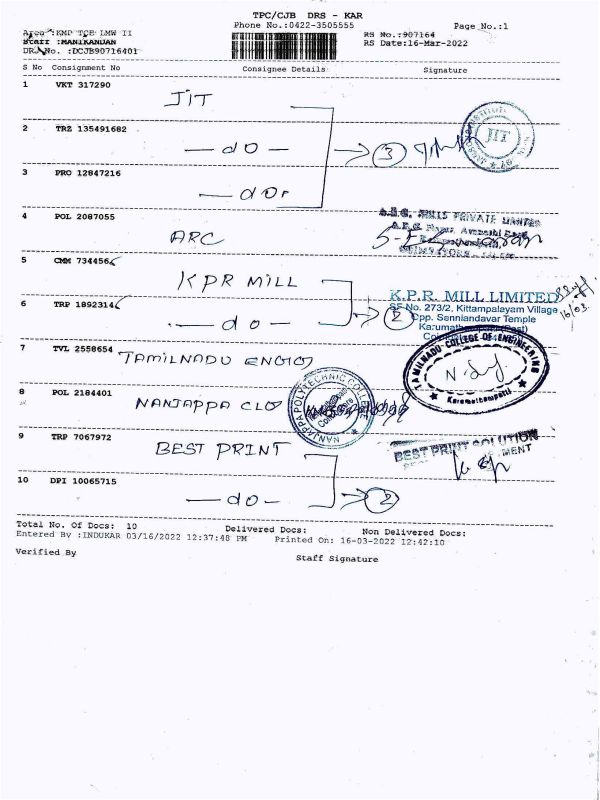 TPC/CJB DRS - KAR
Phone No.:0422-3505555 Page No.:1
Area :KMP TCE LMW II RS No.:907164
Staff :MANIKANDAN RS Date:16-Mar-2022
DRS No. :DCJB90716401
S No Consignment No Consignee Details Signature
1 VKT 317290
JIT
2 TRZ 135491682
— do — 3
JIT
3 PRO 12847216
— do —
4 POL 2087055
ARC
MILLS PRIVATE LIMITED
5 CMM 734456
KPR MILL
K.P.R. MILL LIMITED
SF No. 273/2, Kittampalayam Village
Opp. Senniandavar Temple
16/03
6 TRP 1892314
— do — 2
7 TVL 2558654
TAMILNADU ENGG
TAMILNADU COLLEGE OF ENGINEERING
Karumathampatti
8 POL 2184401
NANJAPPA CLG
NANJAPPA POLYTECHNIC COLLEGE
9 TRP 7067972
BEST PRINT
BEST PRINT SOLUTION
10 DPI 10065715
— do — 2
Total No. Of Docs: 10 Delivered Docs: Non Delivered Docs:
Entered By :INDUKAR 03/16/2022 12:37:48 PM Printed On: 16-03-2022 12:42:10
Verified By Staff Signature